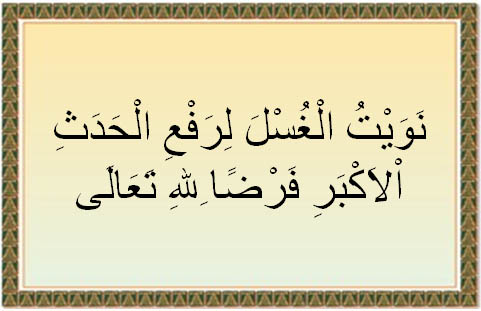 نَوَيْتُ الْغُسْلَ لِرَفْعِ الْحَدَثِ
اْلاَكْبَرِ فَرْضًا ِللهِ تَعَالَى